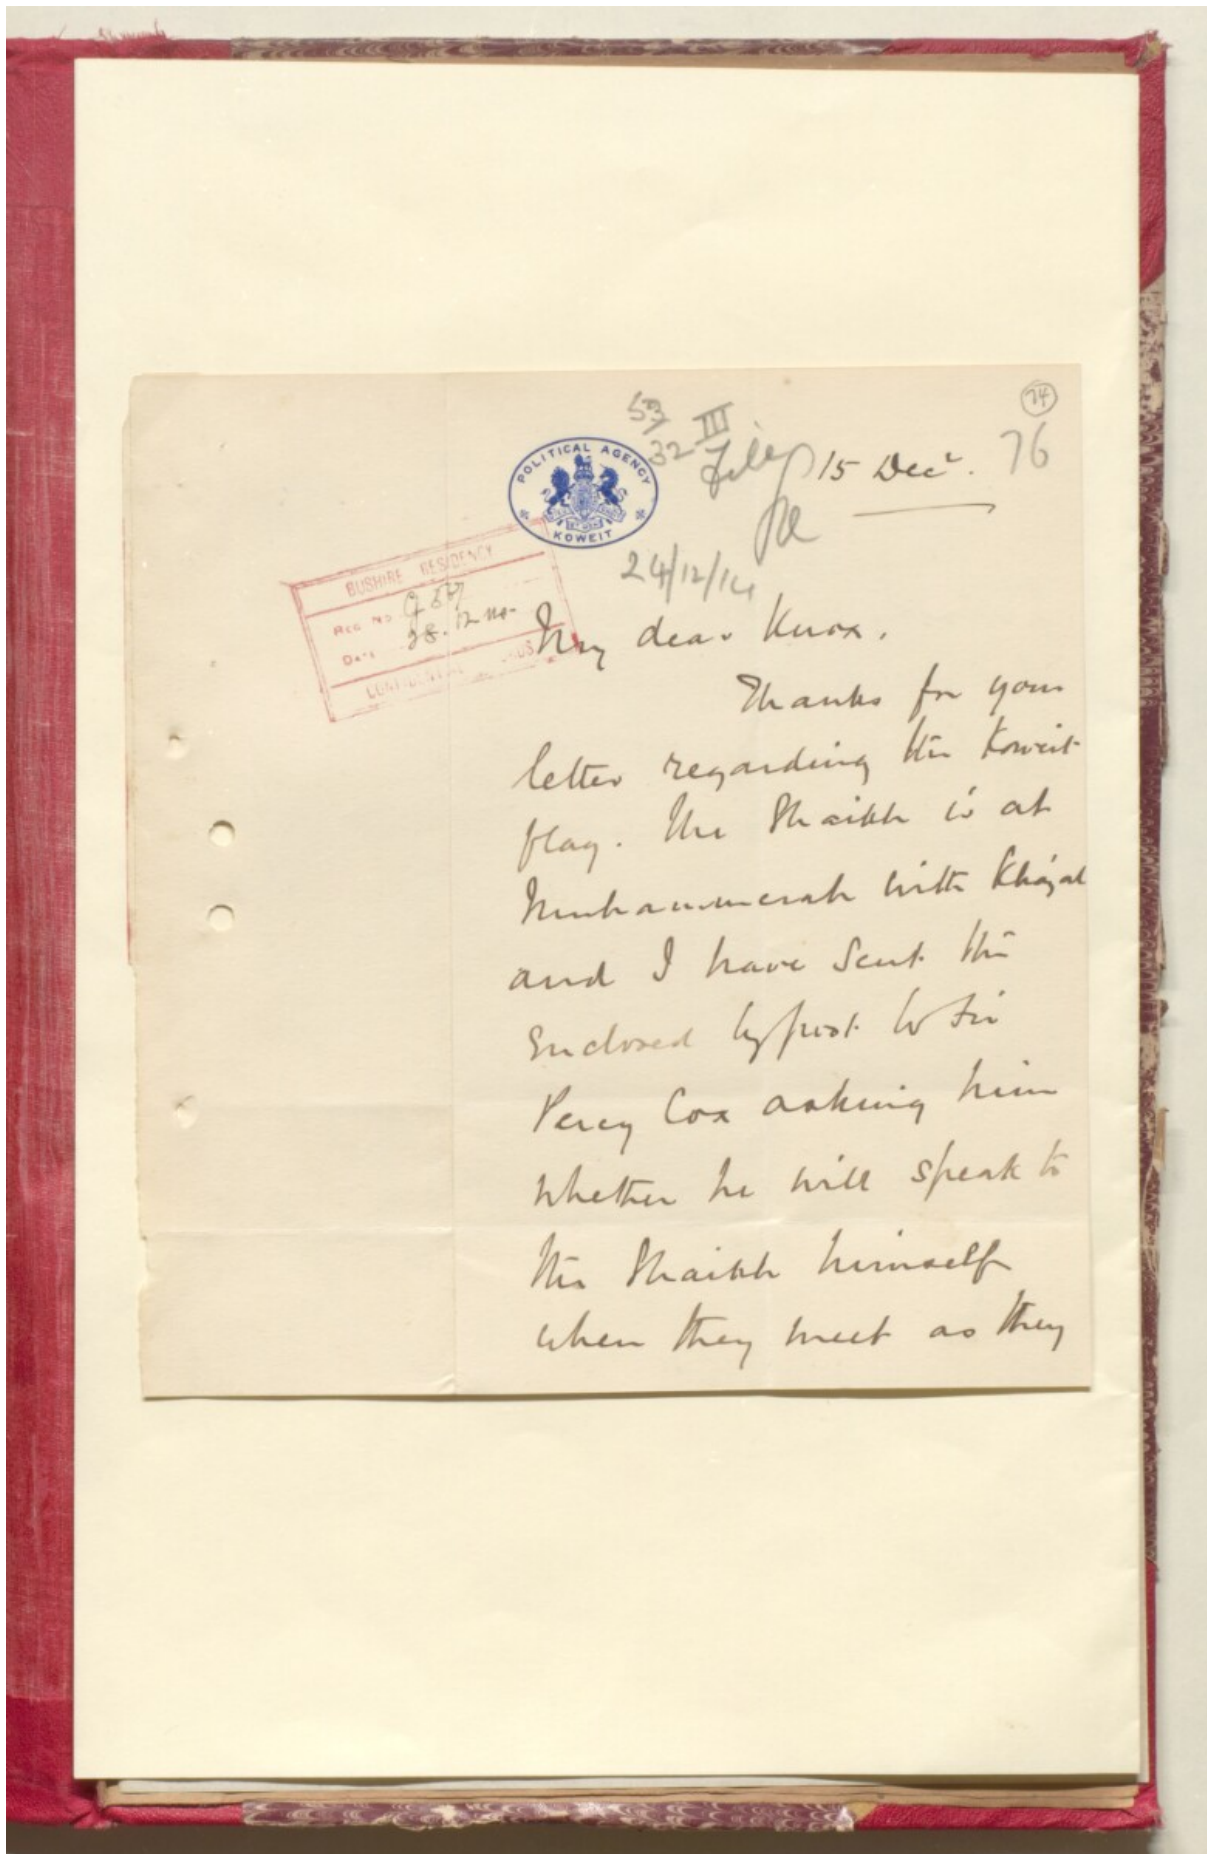 74
76
53/32 III
File
15 Decr.
POLITICAL AGENCY
KOWEIT
24/12/14
BUSHIRE RESIDENCY
REG NO.
DATE 28.12
CONFIDENTIAL
My dear Knox.
Thanks for your
letter regarding the Koweit
flag. The Shaikh is at
Muhammerah with Khazal
and I have sent the
enclosed by post to Sir
Percy Cox asking him
whether he will speak to
the Shaikh himself
when they meet as they